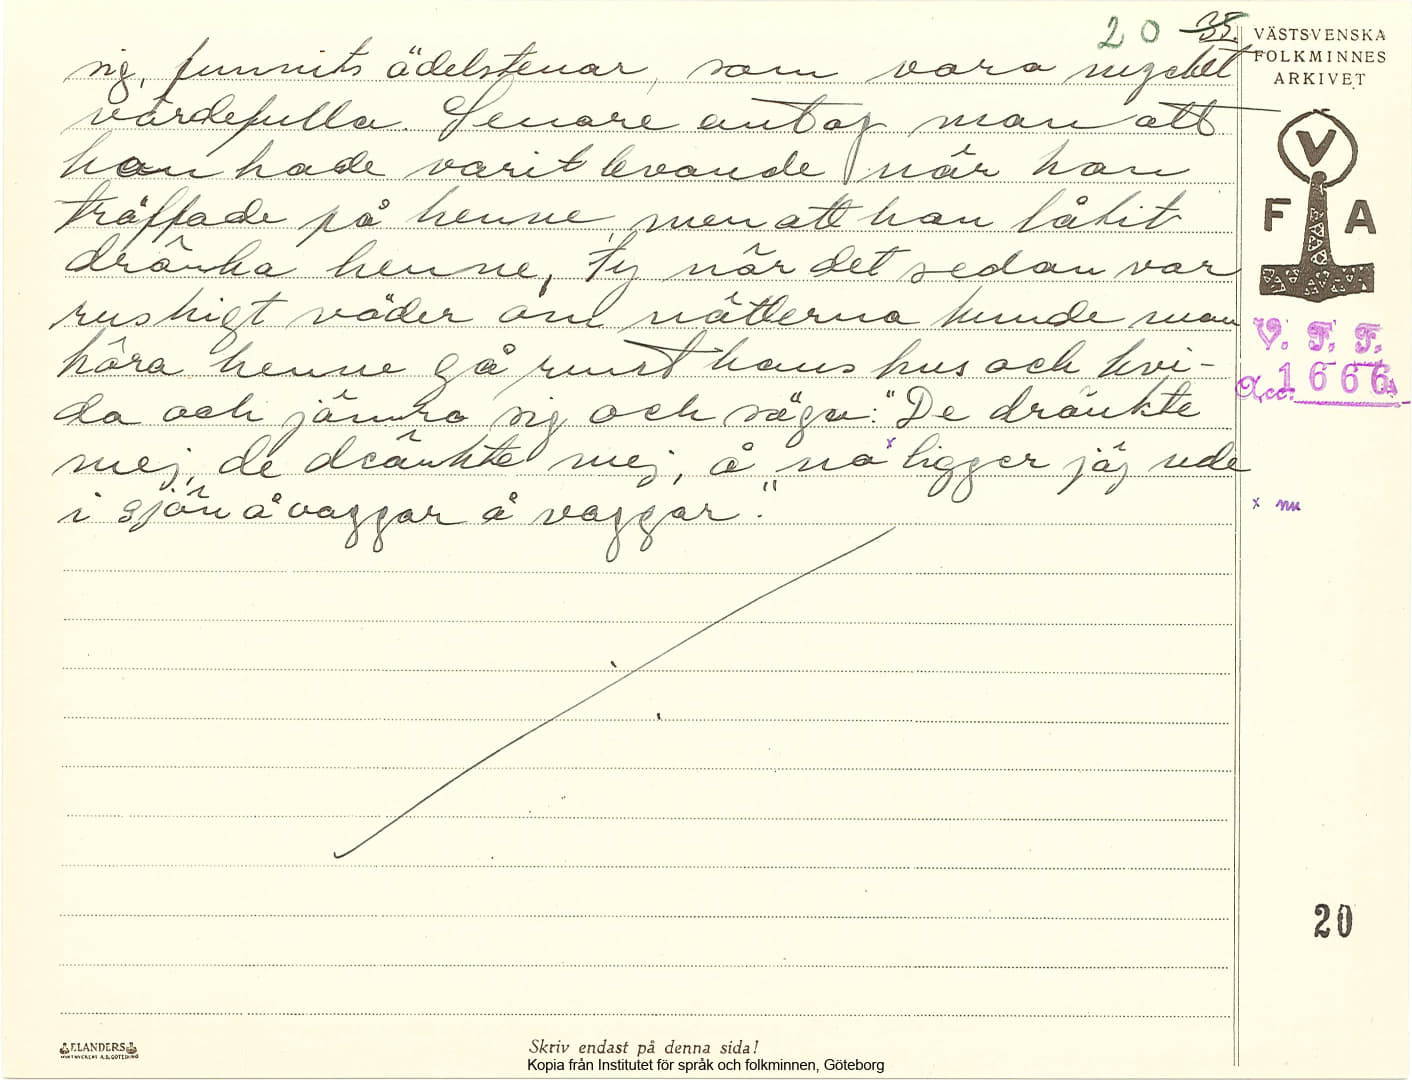 20 35.
VÄSTSVENSKA
FOLKMINNES
ARKIVET
sig, funnits ädelstenar, som vara mycket
värdefulla. Senare antog man att
han hade varit levande när han
träffade på henne, men att han låtit
dränka henne, ty när det sedan var
ruskigt väder om nätterna kunde man
höra henne gå runt hans hus och kvi-
da och jämra sig och säga: "De dränkte
mej, de dränkte mej, å nå x ligger jäj ude
i sjön å vaggar å vaggar."
V
F A
V. F. F.
Acc. 1666
x nu
20
ELANDERS
BOKTRYCKERI A.B. GÖTEBORG
Skriv endast på denna sida!
Kopia från Institutet för språk och folkminnen, Göteborg